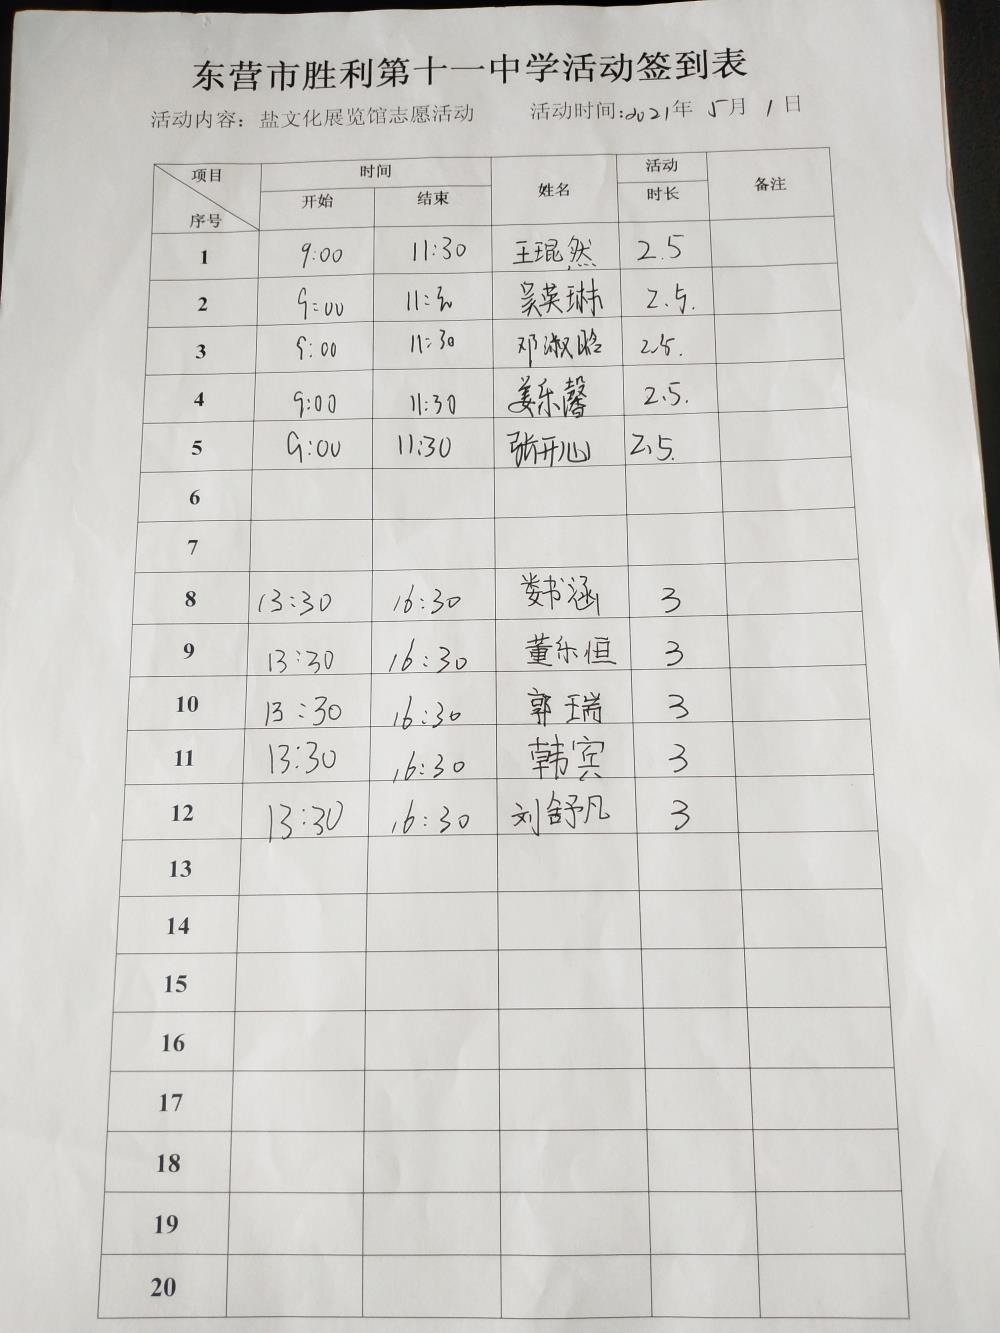 东营市胜利第十一中学活动签到表
活动内容：盐文化展览馆志愿活动 活动时间:2021年 5月 1日
项目 时间 姓名 活动 备注
序号 开始 结束 时长
1 9:00 11:30 王琨然 2.5
2 9:00 11:30 吴英琳 2.5.
3 9:00 11:30 邓淑晗 2.5.
4 9:00 11:30 姜乐馨 2.5.
5 9:00 11:30 张开心 2.5.
6
7
8 13:30 16:30 娄书涵 3
9 13:30 16:30 董乐恒 3
10 13:30 16:30 郭瑞 3
11 13:30 16:30 韩宾 3
12 13:30 16:30 刘舒凡 3
13
14
15
16
17
18
19
20